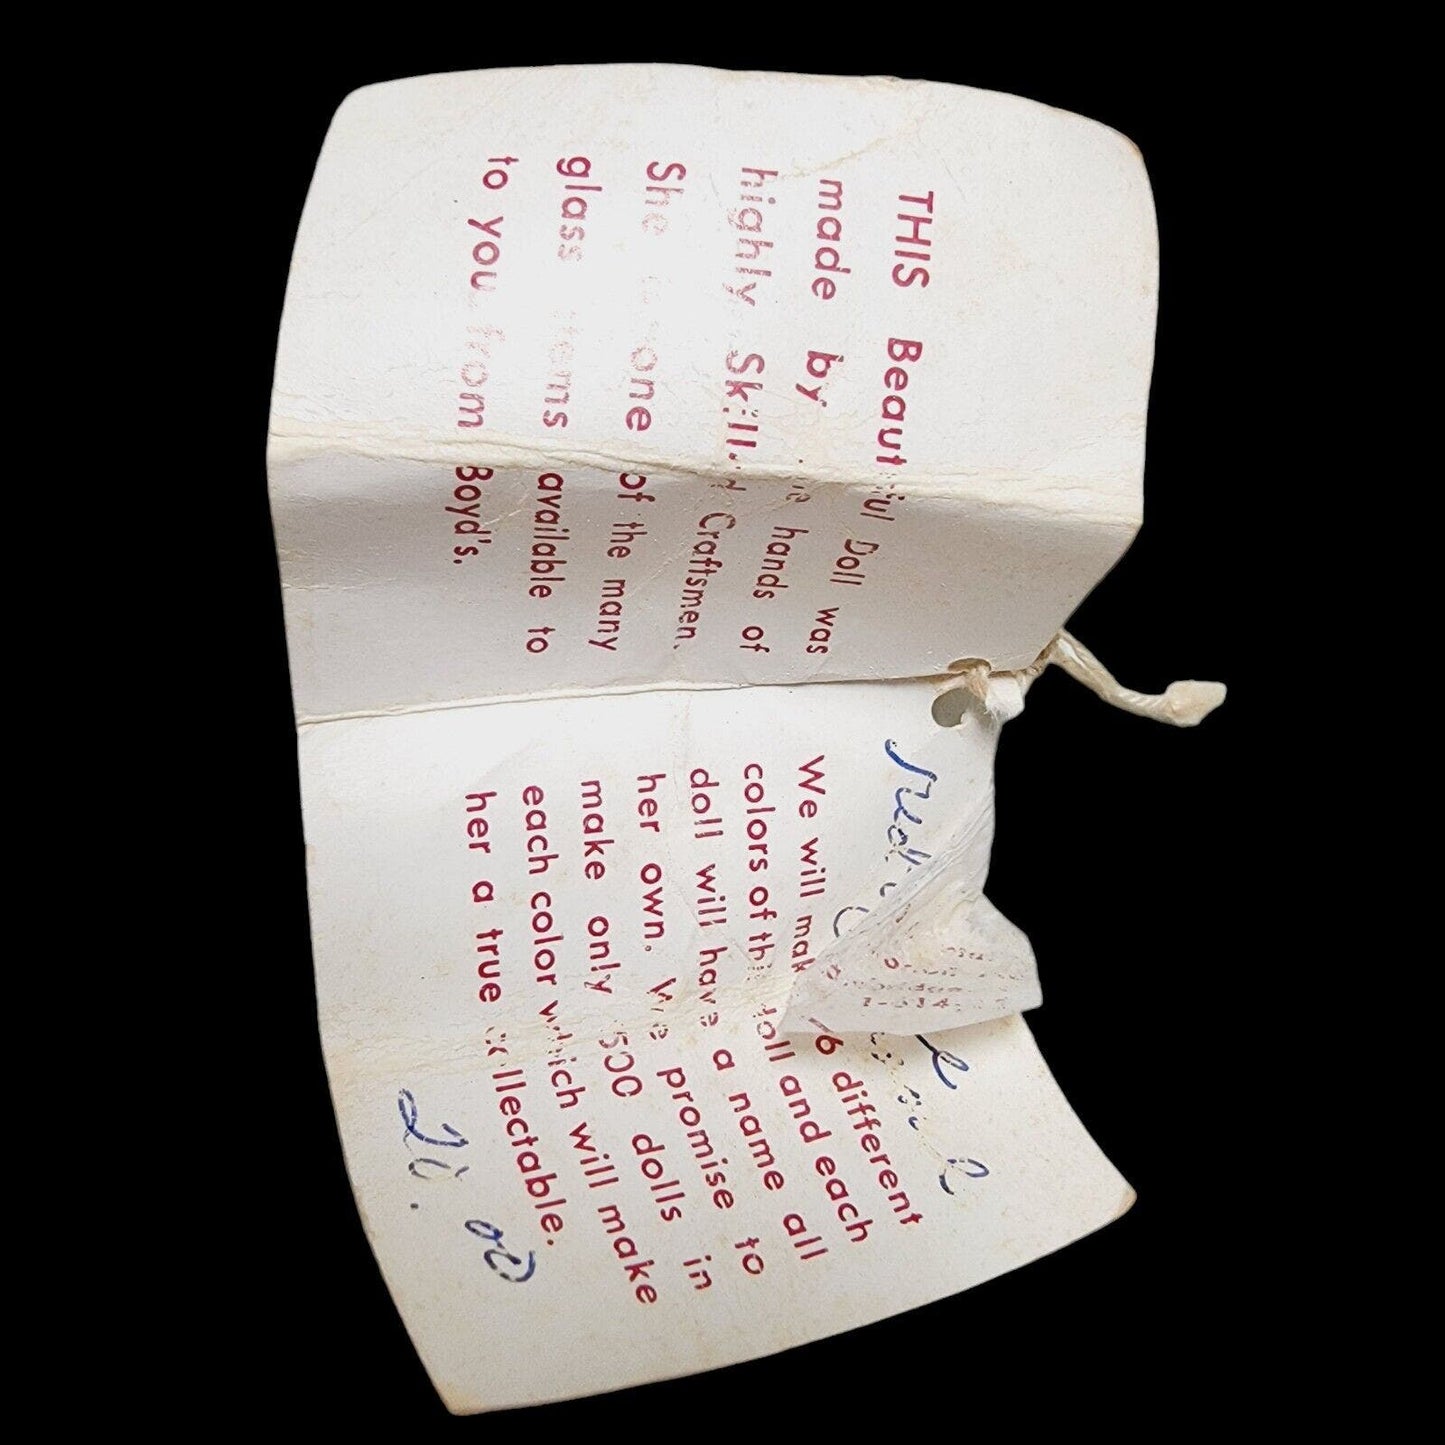 THIS Beautiful Doll was
made by the hands of
highly Skilled Craftsmen.
She is one of the many
glass items available to
to you from Boyd's.
We will make 76 different
colors of this doll and each
doll will have a name all
her own. We promise to
make only 1500 dolls in
each color which will make
her a true collectable.
20.00